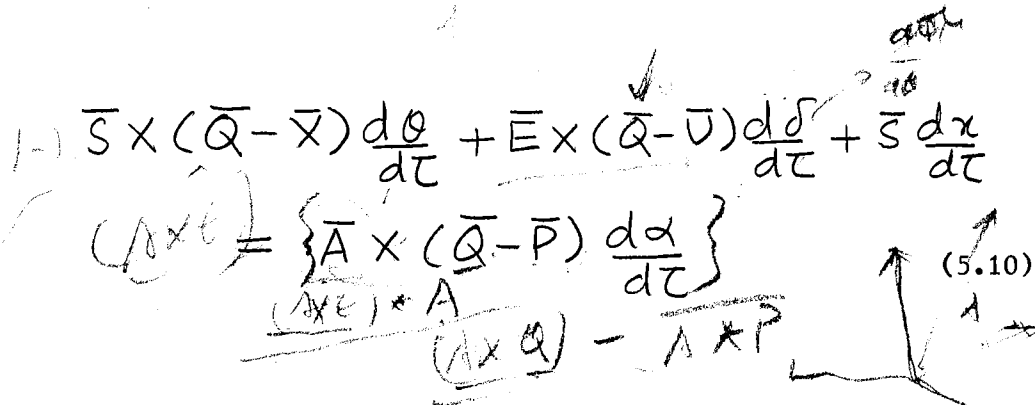 S̅ × (Q̅ - X̅) dθ/dτ + E̅ × (Q̅ - U̅) dδ/dτ + S̅ dx/dτ
(A×E) = {A̅ × (Q̅ - P̅) dα/dτ} (5.10)
(A×E) * A
(A × Q) - A * P